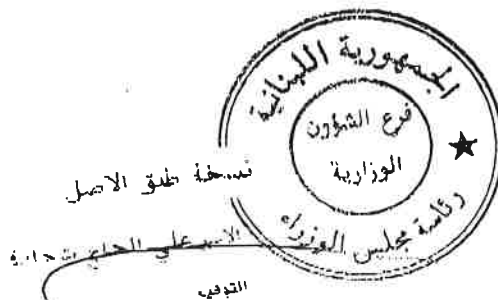 الجمهورية اللبنانية
فرع الشؤون
الوزارية
رئاسة مجلس الوزراء
نسخة طبق الاصل
الاسم علي الحاج
التوقيع